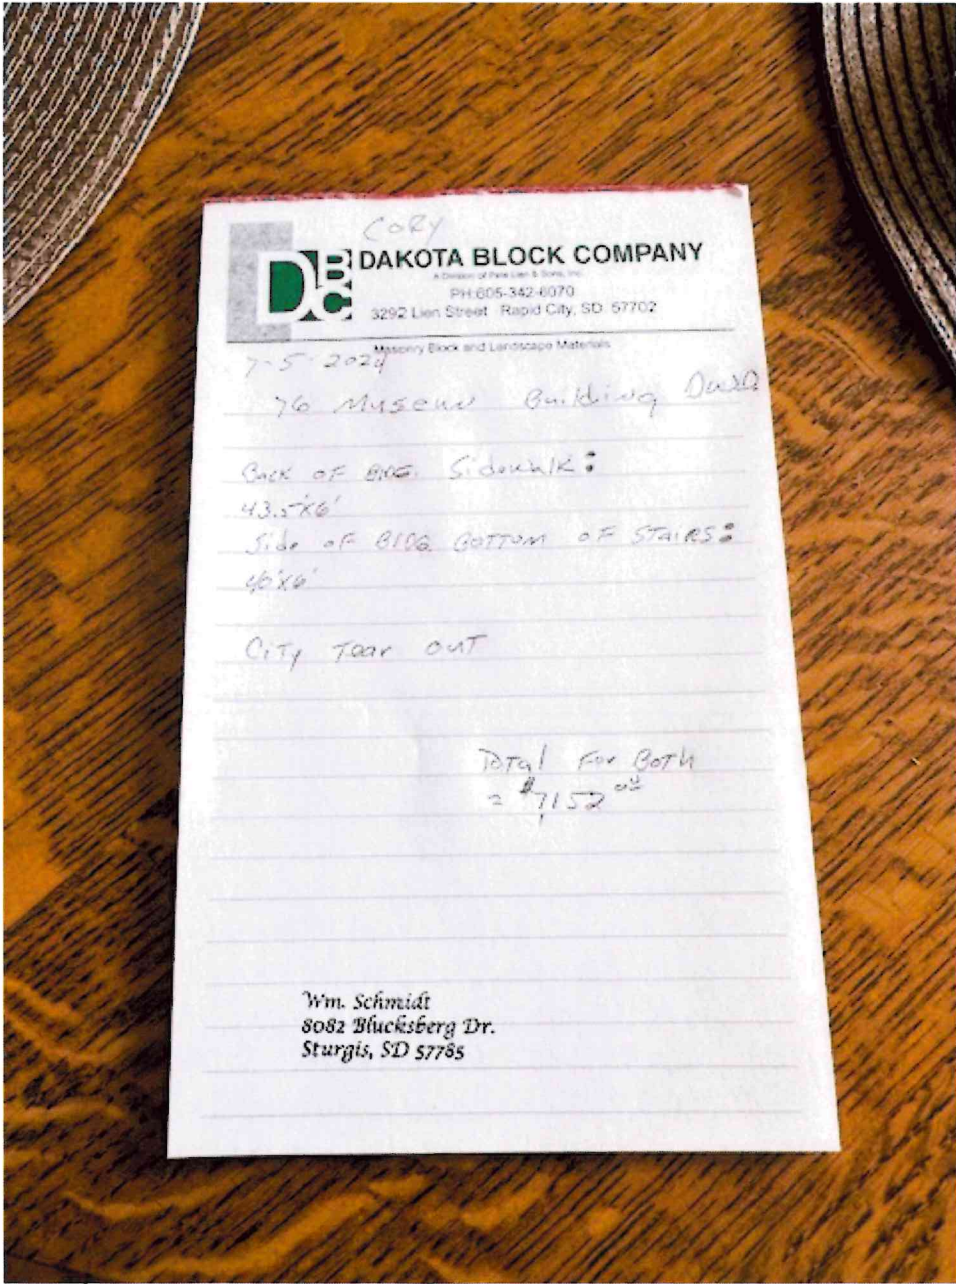 CORY
DBC
DAKOTA BLOCK COMPANY
A Division of Pete Lien & Sons, Inc.
PH:605-342-6070
3292 Lien Street Rapid City, SD 57702
Masonry Block and Landscape Materials
7-5-2024
76 Museum Building
BACK OF BLDG. Sidewalk:
43.5'X6'
Side OF BLDG BOTTOM OF STAIRS:
40'X6'
CITY Tear OUT
Total For Both
= $7,152 00
Wm. Schmidt
8082 Blucksberg Dr.
Sturgis, SD 57785